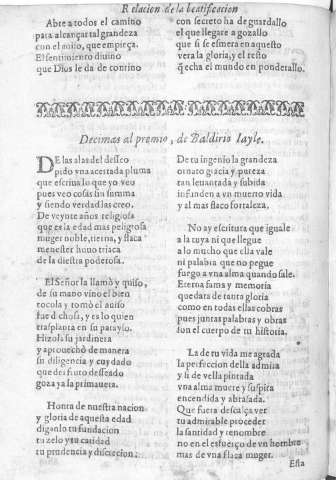 Relacion de la beatificacion
Abre a todos el camino
para alcançar tal grandeza
con el niño, que empieça.
El sentimiento diuino
que Dios le da de contino
con secreto ha de guardallo
el que llegare a gozallo
que si se esmera en aquesto
vera la gloria, y el resto
q̃ echa el mundo en ponderallo.
Decimas al premio, de Baldirio Iayle.
DE las alas del desseo
pido vna acertada pluma
que escriua lo que yo veo
pues veo cosas sin summa
y siendo verdad las creo.
De veynte años religiosa
que es la edad mas peligrosa
muger noble, tierna, y flaca
menester huuo triaca
de la diestra poderosa.
El Señor la llamò y quiso,
de su mano vino el bien
tocola y tomò el auiso
fue dichosa, y es lo quien
trasplanta en su parayso.
Hizola su jardinera
y aprouechò de manera
su diligencia y cuydado
que del fruto desseado
goza ya la primauera.
Honra de nuestra nacion
y gloria de aquesta edad
diganlo tu fundacion
tu zelo y tu caridad
tu prudencia y discrecion:
De tu ingenio la grandeza
ornato gracia y pureza
tan leuantada y subida
infunden a vn muerto vida
y al mas flaco fortaleza,
No ay escritura que iguale
a la tuya ni que llegue
a lo mucho que ella vale
ni palabra que no pegue
fuego a vna alma quando sale.
Eterna fama y memoria
quedara de tanta gloria
como en todas ellas obras
pues juntas palabras y obras
son el cuerpo de tu historia.
La de tu vida me agrada
la perfeccion della admira
y si de vella pintada
vna alma muere y suspira
encendida y abrasada.
Que fuera descalça ver
tu admirable proceder
la santidad y renombre
no en el esfuerço de vn hombre
mas de vna flaca muger.
Esta